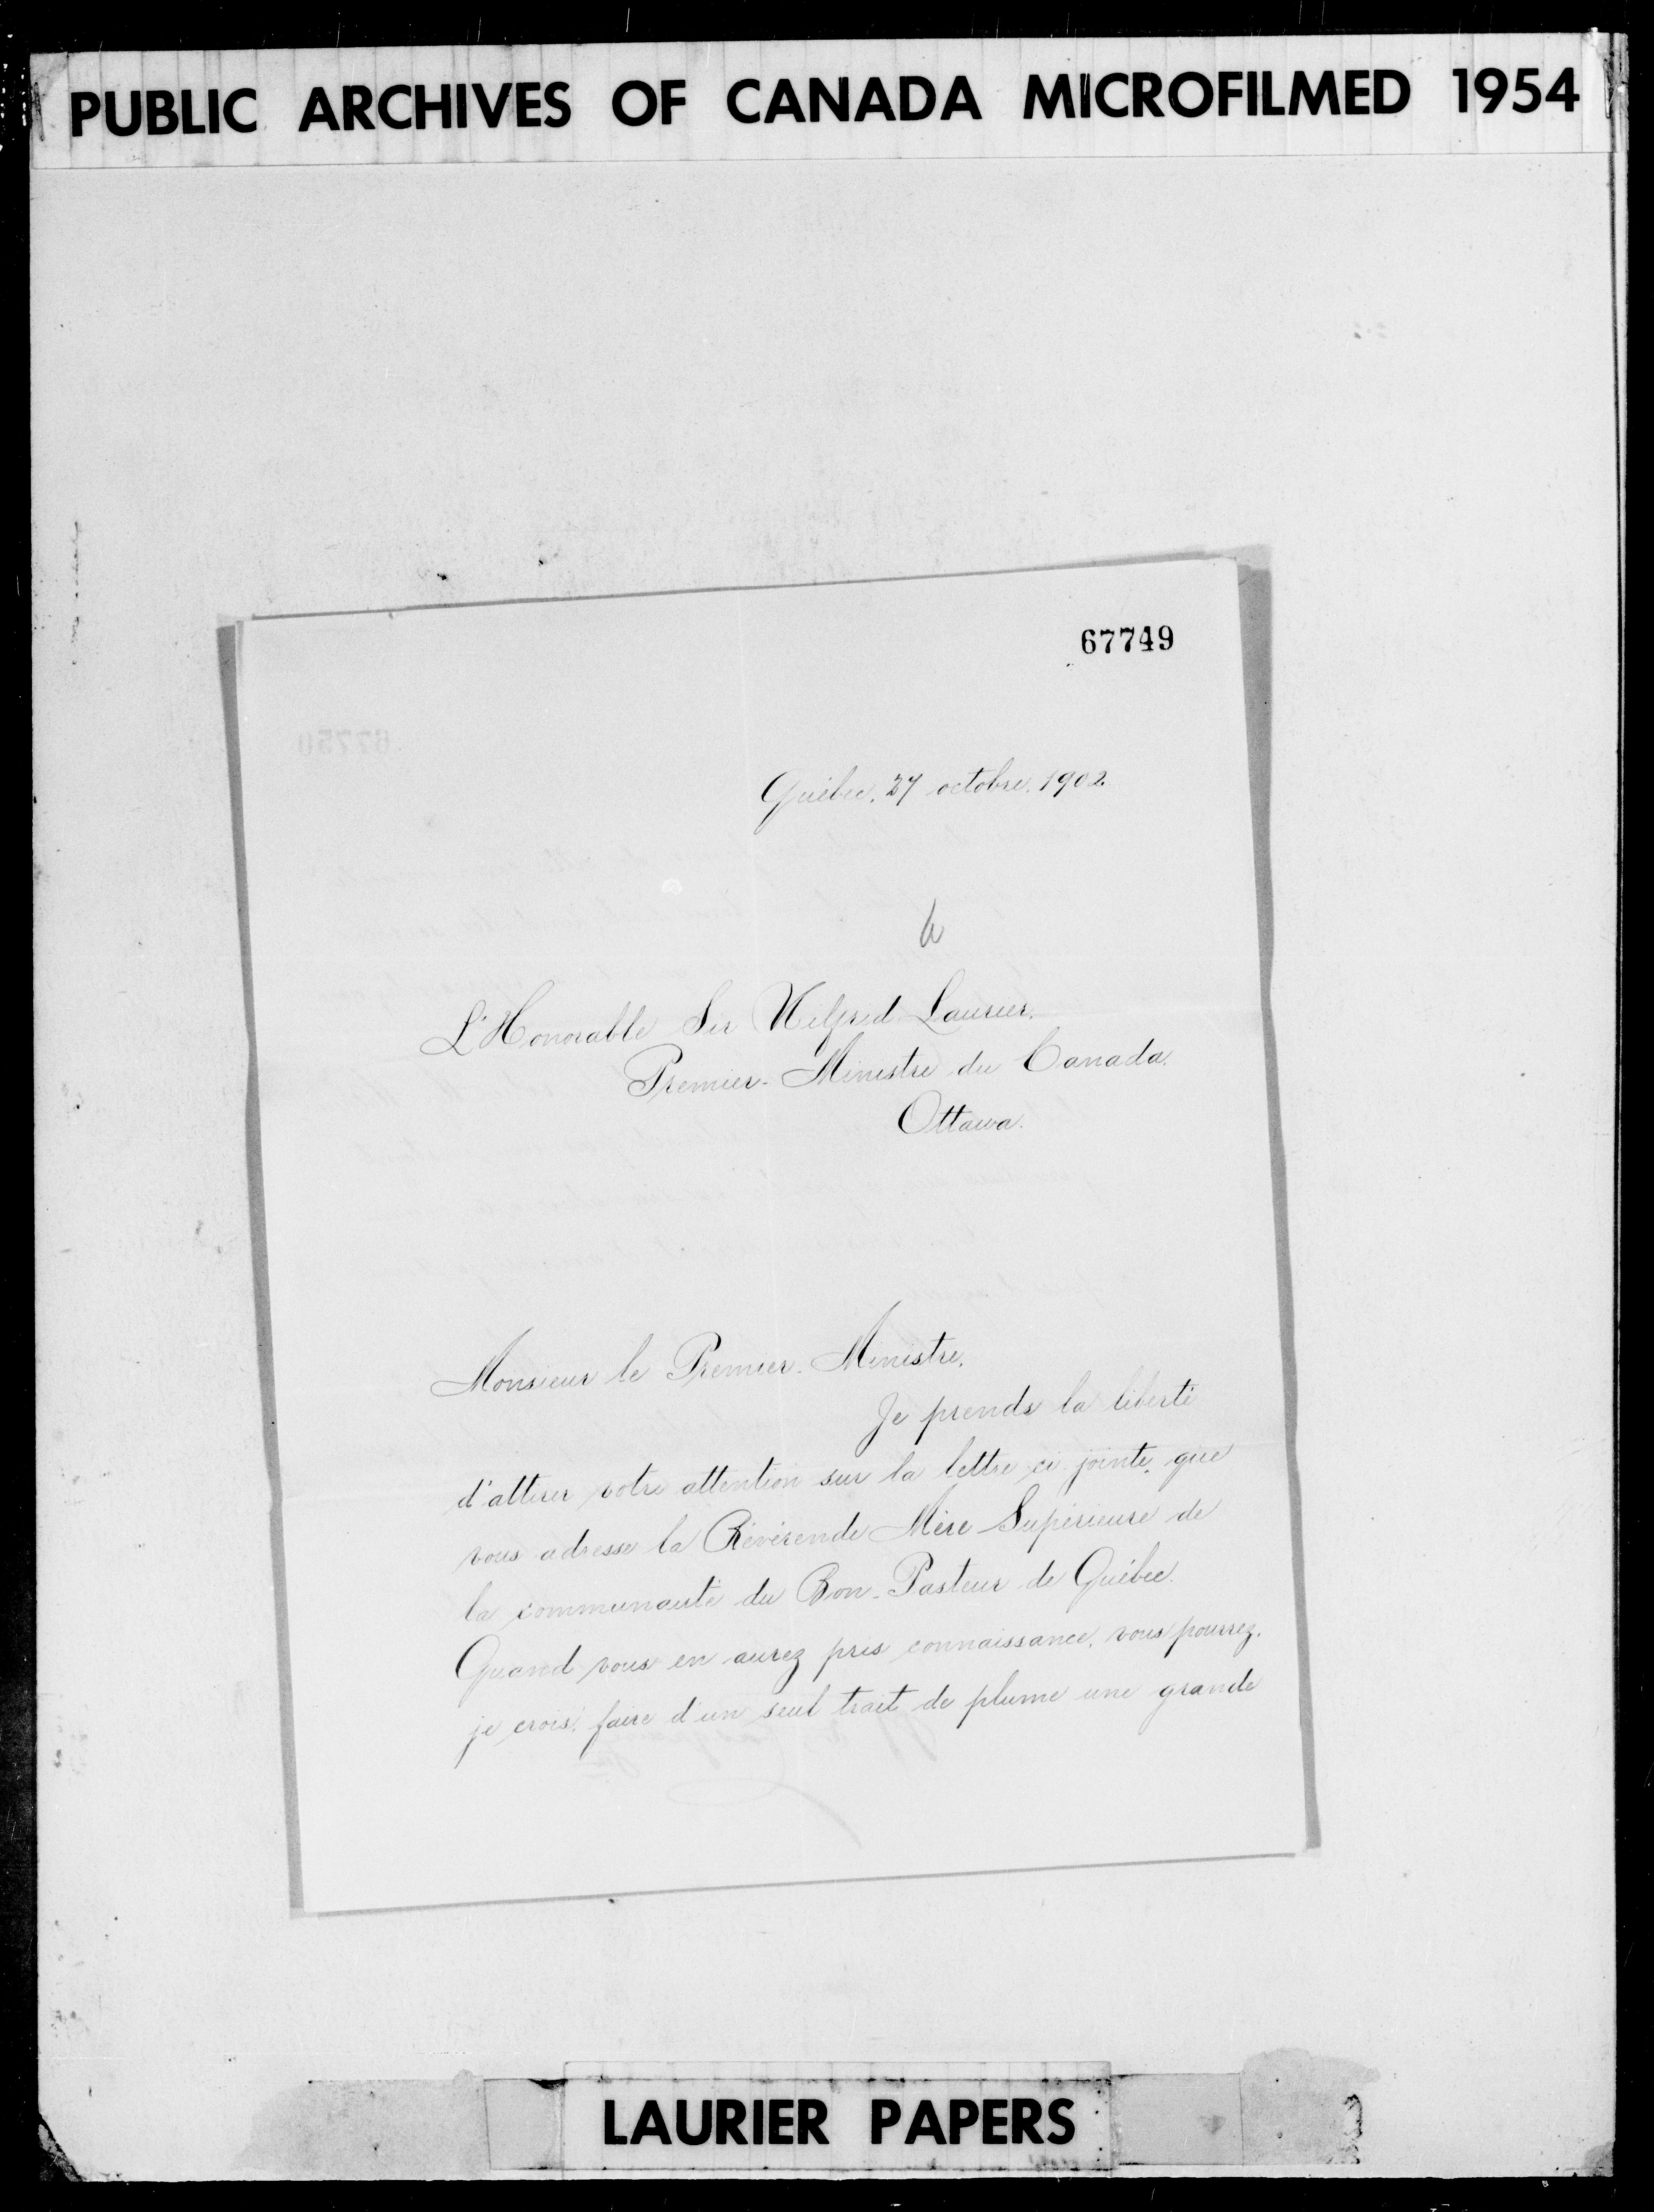 PUBLIC ARCHIVES OF CANADA MICROFILMED 1954
67749
Québec, 27 octobre, 1902
L'Honorable Sir Wilfrid Laurier,
Premier-Ministre du Canada,
Ottawa.
Monsieur le Premier-Ministre,
Je prends la liberté
d'attirer votre attention sur la lettre ci-jointe, que
vous adresse la Révérende Mère Supérieure de
la communauté du Bon-Pasteur de Québec.
Quand vous en aurez pris connaissance, vous pourrez,
je crois, faire d'un seul trait de plume une grande
LAURIER PAPERS